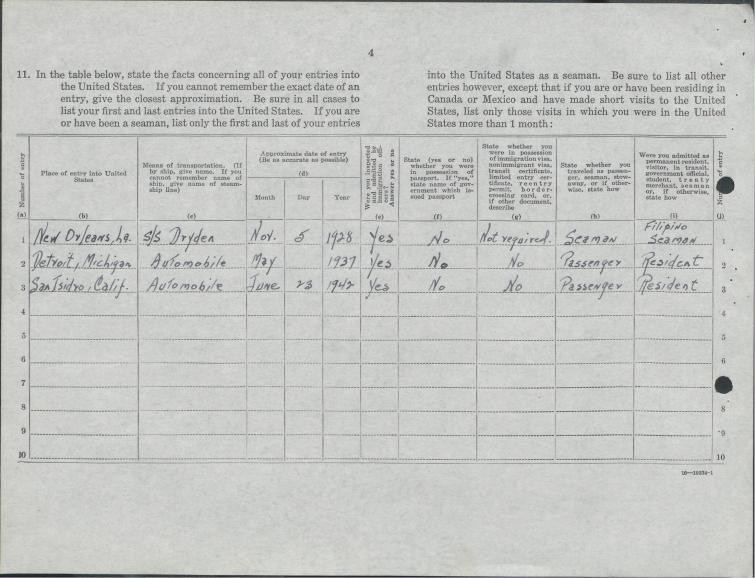 4
11. In the table below, state the facts concerning all of your entries into
the United States. If you cannot remember the exact date of an
entry, give the closest approximation. Be sure in all cases to
list your first and last entries into the United States. If you are
or have been a seaman, list only the first and last of your entries
into the United States as a seaman. Be sure to list all other
entries however, except that if you are or have been residing in
Canada or Mexico and have made short visits to the United
States, list only those visits in which you were in the United
States more than 1 month:
Number of entry
(a)
Place of entry into United
States
(b)
Means of transportation. (If
by ship, give name. If you
cannot remember name of
ship, give name of steam-
ship line)
(c)
Approximate date of entry
(Be as accurate as possible)
(d)
Month Day Year
Were you inspected
and admitted by
immigration offi-
cers?
Answer yes or no
(e)
State (yes or no)
whether you were
in possession of
passport. If "yes,"
state name of gov-
ernment which is-
sued passport
(f)
State whether you
were in possession
of immigration visa,
nonimmigrant visa,
transit certificate,
limited entry cer-
tificate, reentry
permit, border-
crossing card, or,
if other document,
describe
(g)
State whether you
traveled as passen-
ger, seaman, stow-
away, or if other-
wise, state how
(h)
Were you admitted as
permanent resident,
visitor, in transit,
government official,
student, treaty
merchant, seaman
or, if otherwise,
state how
(i)
of entry
(j)
1 New Orleans, La. S/S Dryden Nov. 5 1928 Yes No Not required. Seaman Filipino Seaman 1
2 Detroit, Michigan Automobile May 1937 Yes No No Passenger Resident 2
3 San Isidro, Calif. Automobile June 23 1942 Yes No No Passenger Resident 3
4 4
5 5
6 6
7
8 8
9 9
10 10
16—19234-1